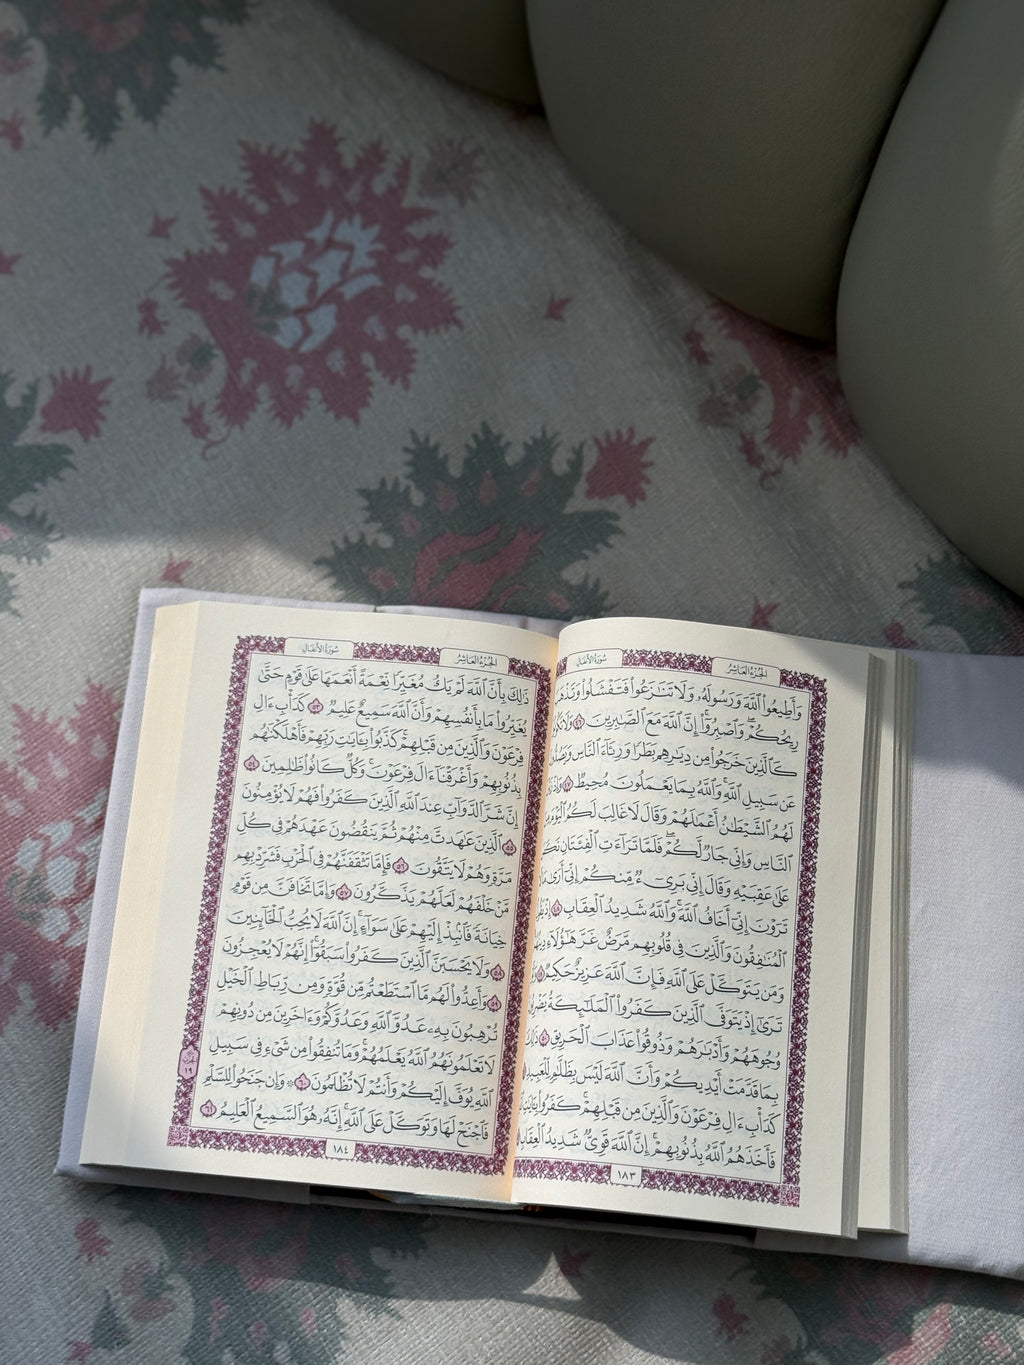 الجزء العاشر
سورة الأنفال
وَأَطِيعُوا۟ ٱللَّهَ وَرَسُولَهُۥ وَلَا تَنَٰزَعُوا۟ فَتَفْشَلُوا۟ وَتَذْهَبَ
رِيحُكُمْ ۖ وَٱصْبِرُوٓا۟ ۚ إِنَّ ٱللَّهَ مَعَ ٱلصَّٰبِرِينَ ٤٦ وَلَا تَكُونُوا۟
كَٱلَّذِينَ خَرَجُوا۟ مِن دِيَٰرِهِم بَطَرًا وَرِئَآءَ ٱلنَّاسِ وَيَصُدُّونَ
عَن سَبِيلِ ٱللَّهِ ۚ وَٱللَّهُ بِمَا يَعْمَلُونَ مُحِيطٌ ٤٧ وَإِذْ زَيَّنَ
لَهُمُ ٱلشَّيْطَٰنُ أَعْمَٰلَهُمْ وَقَالَ لَا غَالِبَ لَكُمُ ٱلْيَوْمَ مِنَ
ٱلنَّاسِ وَإِنِّى جَارٌ لَّكُمْ ۖ فَلَمَّا تَرَآءَتِ ٱلْفِئَتَانِ نَكَصَ
عَلَىٰ عَقِبَيْهِ وَقَالَ إِنِّى بَرِىٓءٌ مِّنكُمْ إِنِّىٓ أَرَىٰ مَا لَا
تَرَوْنَ إِنِّىٓ أَخَافُ ٱللَّهَ ۚ وَٱللَّهُ شَدِيدُ ٱلْعِقَابِ ٤٨ إِذْ يَقُولُ
ٱلْمُنَٰفِقُونَ وَٱلَّذِينَ فِى قُلُوبِهِم مَّرَضٌ غَرَّ هَٰٓؤُلَآءِ دِينُهُمْ ۗ
وَمَن يَتَوَكَّلْ عَلَى ٱللَّهِ فَإِنَّ ٱللَّهَ عَزِيزٌ حَكِيمٌ ٤٩ وَلَوْ
تَرَىٰٓ إِذْ يَتَوَفَّى ٱلَّذِينَ كَفَرُوا۟ ۙ ٱلْمَلَٰٓئِكَةُ يَضْرِبُونَ
وُجُوهَهُمْ وَأَدْبَٰرَهُمْ وَذُوقُوا۟ عَذَابَ ٱلْحَرِيقِ ٥٠ ذَٰلِكَ
بِمَا قَدَّمَتْ أَيْدِيكُمْ وَأَنَّ ٱللَّهَ لَيْسَ بِظَلَّٰمٍ لِّلْعَبِيدِ
كَدَأْبِ ءَالِ فِرْعَوْنَ ۙ وَٱلَّذِينَ مِن قَبْلِهِمْ ۚ كَفَرُوا۟ بِـَٔايَٰتِ
فَأَخَذَهُمُ ٱللَّهُ بِذُنُوبِهِمْ ۗ إِنَّ ٱللَّهَ قَوِىٌّ شَدِيدُ ٱلْعِقَابِ
١٨٣
الجزء العاشر
سورة الأنفال
ذَٰلِكَ بِأَنَّ ٱللَّهَ لَمْ يَكُ مُغَيِّرًا نِّعْمَةً أَنْعَمَهَا عَلَىٰ قَوْمٍ حَتَّىٰ
يُغَيِّرُوا۟ مَا بِأَنفُسِهِمْ ۙ وَأَنَّ ٱللَّهَ سَمِيعٌ عَلِيمٌ ٥٣ كَدَأْبِ ءَالِ
فِرْعَوْنَ ۙ وَٱلَّذِينَ مِن قَبْلِهِمْ ۚ كَذَّبُوا۟ بِـَٔايَٰتِ رَبِّهِمْ فَأَهْلَكْنَٰهُم
بِذُنُوبِهِمْ وَأَغْرَقْنَآ ءَالَ فِرْعَوْنَ ۚ وَكُلٌّ كَانُوا۟ ظَٰلِمِينَ ٥٤
إِنَّ شَرَّ ٱلدَّوَآبِّ عِندَ ٱللَّهِ ٱلَّذِينَ كَفَرُوا۟ فَهُمْ لَا يُؤْمِنُونَ
٥٥ ٱلَّذِينَ عَٰهَدتَّ مِنْهُمْ ثُمَّ يَنقُضُونَ عَهْدَهُمْ فِى كُلِّ
مَرَّةٍ وَهُمْ لَا يَتَّقُونَ ٥٦ فَإِمَّا تَثْقَفَنَّهُمْ فِى ٱلْحَرْبِ فَشَرِّدْ بِهِم
مَّنْ خَلْفَهُمْ لَعَلَّهُمْ يَذَّكَّرُونَ ٥٧ وَإِمَّا تَخَافَنَّ مِن قَوْمٍ
خِيَانَةً فَٱنۢبِذْ إِلَيْهِمْ عَلَىٰ سَوَآءٍ ۚ إِنَّ ٱللَّهَ لَا يُحِبُّ ٱلْخَآئِنِينَ
٥٨ وَلَا يَحْسَبَنَّ ٱلَّذِينَ كَفَرُوا۟ سَبَقُوٓا۟ ۚ إِنَّهُمْ لَا يُعْجِزُونَ
٥٩ وَأَعِدُّوا۟ لَهُم مَّا ٱسْتَطَعْتُم مِّن قُوَّةٍ وَمِن رِّبَاطِ ٱلْخَيْلِ
تُرْهِبُونَ بِهِۦ عَدُوَّ ٱللَّهِ وَعَدُوَّكُمْ وَءَاخَرِينَ مِن دُونِهِمْ
لَا تَعْلَمُونَهُمُ ٱللَّهُ يَعْلَمُهُمْ ۚ وَمَا تُنفِقُوا۟ مِن شَىْءٍ فِى سَبِيلِ
ٱللَّهِ يُوَفَّ إِلَيْكُمْ وَأَنتُمْ لَا تُظْلَمُونَ ٦٠ ۞ وَإِن جَنَحُوا۟ لِلسَّلْمِ
فَٱجْنَحْ لَهَا وَتَوَكَّلْ عَلَى ٱللَّهِ ۚ إِنَّهُۥ هُوَ ٱلسَّمِيعُ ٱلْعَلِيمُ ٦١
١٨٤